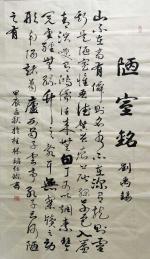 陋室銘
劉禹錫
山不在高有仙則名水不在深有龍則靈
斯是陋室惟吾德馨苔痕上階綠草色入簾
青談笑有鴻儒往來無白丁可以調素琴
閱金經無絲竹之亂耳無案牘之勞
形南陽諸葛廬西蜀子雲亭孔子云何陋
之有
甲辰 秋於桂林